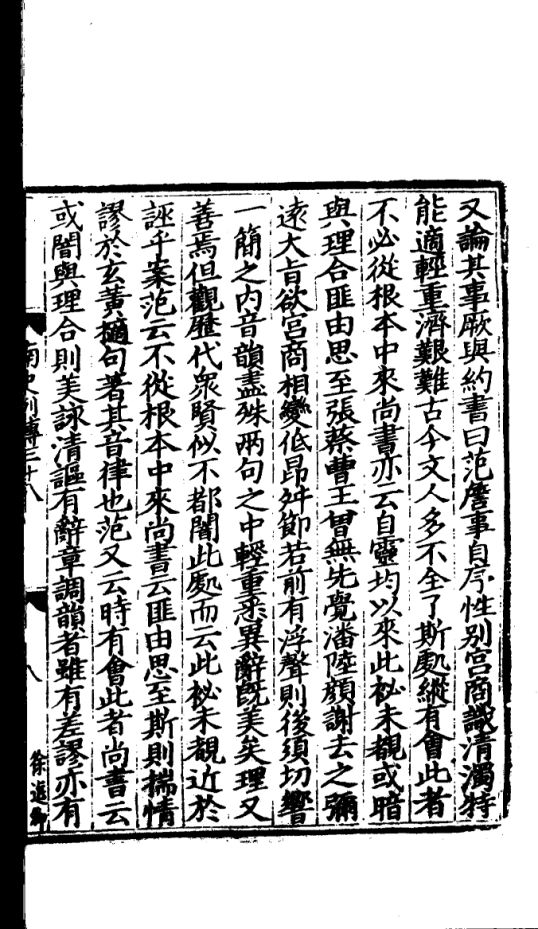 又論其事厥與約書曰范詹事自序性別宮商識清濁特
能適輕重濟艱難古今文人多不全了斯處縱有會此者
不必從根本中來尚書亦云自靈均以來此祕未覩或暗
與理合匪由思至張蔡曹王曾無先覺潘陸顏謝去之彌
遠大旨欲宮商相變低昂舛節若前有浮聲則後須切響
一簡之內音韻盡殊兩句之中輕重悉異辭旣美矣理又
善焉但觀歷代衆賢似不都闇此處而云此祕未覩近於
誣乎案范云不從根本中來尚書云匪由思至斯則揣情
謬於玄黃擿句著其音律也范又云時有會此者尚書云
或闇與理合則美詠清謳有辭章調韻者雖有差謬亦有
南史列傳三十八
八